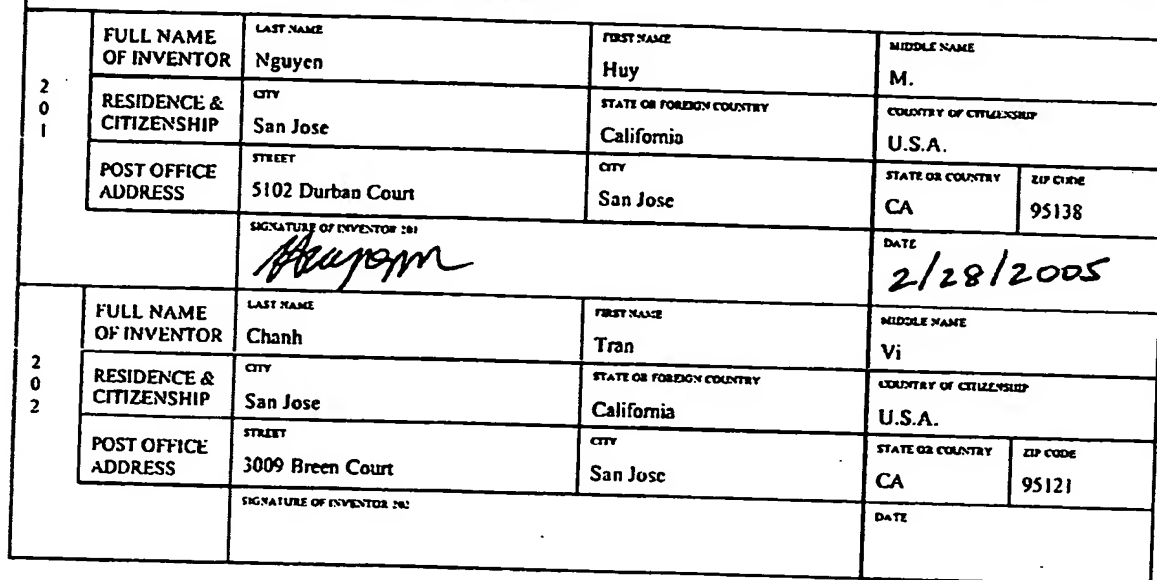 201
FULL NAME OF INVENTOR
LAST NAME
Nguyen
FIRST NAME
Huy
MIDDLE NAME
M.
RESIDENCE & CITIZENSHIP
CITY
San Jose
STATE OR FOREIGN COUNTRY
California
COUNTRY OF CITIZENSHIP
U.S.A.
POST OFFICE ADDRESS
STREET
5102 Durban Court
CITY
San Jose
STATE OR COUNTRY
CA
ZIP CODE
95138
SIGNATURE OF INVENTOR 201
DATE
2/28/2005
202
FULL NAME OF INVENTOR
LAST NAME
Chanh
FIRST NAME
Tran
MIDDLE NAME
Vi
RESIDENCE & CITIZENSHIP
CITY
San Jose
STATE OR FOREIGN COUNTRY
California
COUNTRY OF CITIZENSHIP
U.S.A.
POST OFFICE ADDRESS
STREET
3009 Breen Court
CITY
San Jose
STATE OR COUNTRY
CA
ZIP CODE
95121
SIGNATURE OF INVENTOR 202
DATE